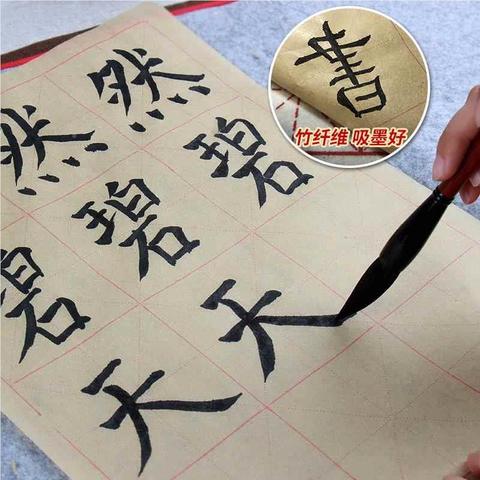 竹纤维 吸墨好
然然
碧碧碧
天天